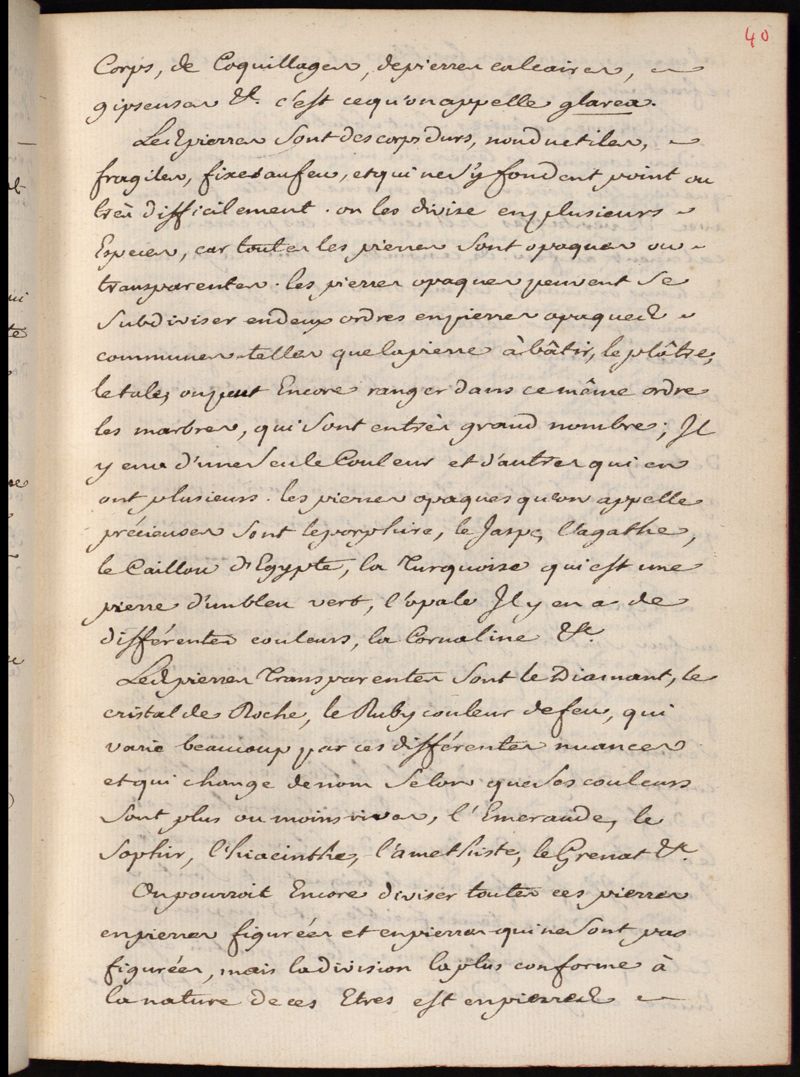 40
Corps, de Coquillages, de pierres calcaires,
gipseuses &c. c'est ce qu'on appelle glarea.
Les pierres sont des corps durs, non ductiles,
fragiles, fixes au feu, et qui ne s'y fondent point ou
très difficilement. on les divise en plusieurs
Especes, car toutes les pierres sont opaques ou
transparentes. les pierres opaques peuvent se
subdiviser en deux ordres en pierres opaques
communes telles que la pierre à bâtir, le plâtre,
le talc, on peut Encore ranger dans ce même ordre
les marbres, qui sont en très grand nombre; Il
y en a d'une seule Couleur et d'autres qui en
ont plusieurs. les pierres opaques qu'on appelle
précieuses sont le porphire, le Jaspe, l'agathe,
le Caillou d'Egypte, la Turquoise qui est une
pierre d'un bleu vert, l'opale Il y en a de
différentes couleurs, la Cornaline &c.
Les pierres Transparentes sont le Diamant, le
cristal de Roche, le Ruby couleur de feu, qui
varie beaucoup par ces différentes nuances
et qui change de nom selon que ses couleurs
sont plus ou moins vives, l'Emeraude, le
Saphir, l'hiacinthe, l'amethiste, le Grenat &c.
On pourroit Encore diviser toutes ces pierres
en pierres figurées et en pierres qui ne sont pas
figurées, mais la division la plus conforme à
la nature de ces Etres est en pierres